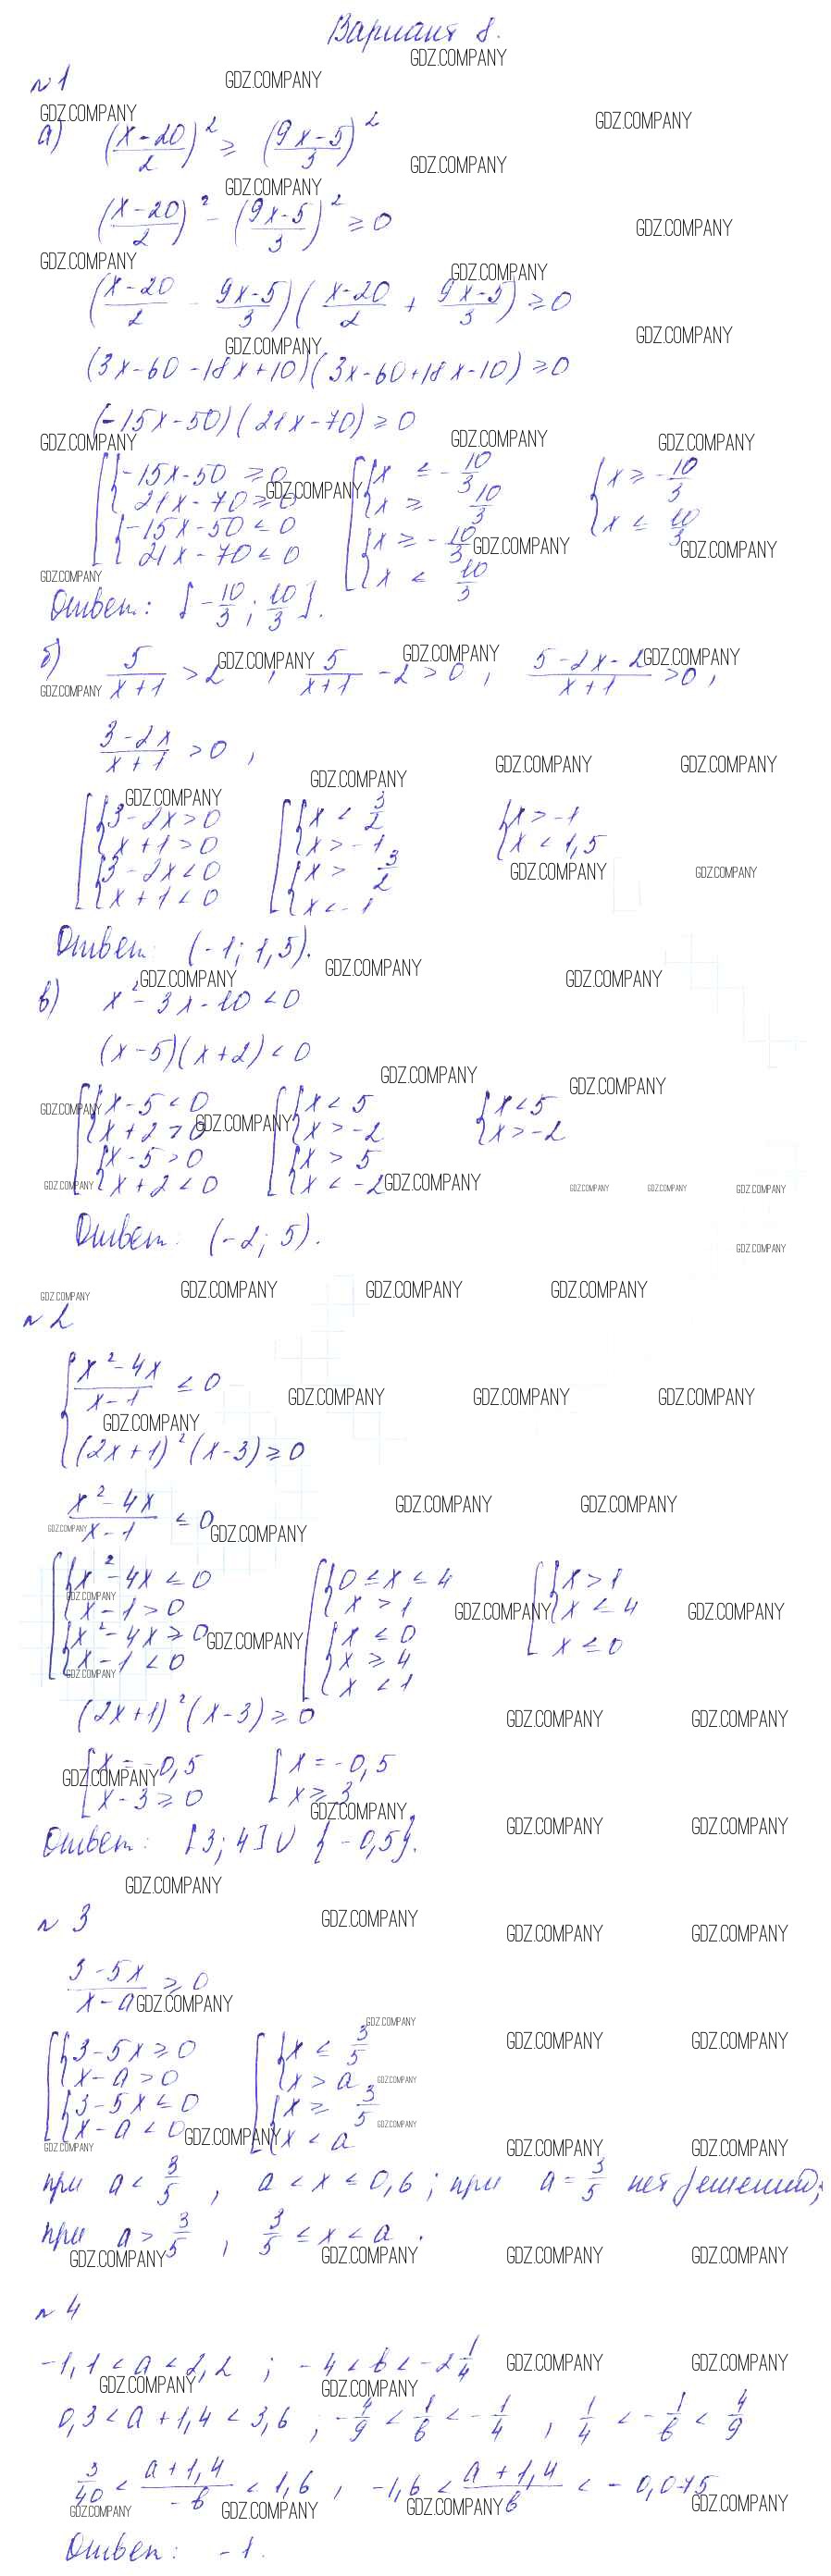 Вариант 8.
GDZ.COMPANY
№1
а) ((x-20)/2)² ≥ ((9x-5)/3)²
((x-20)/2)² - ((9x-5)/3)² ≥ 0
((x-20)/2 - (9x-5)/3)((x-20)/2 + (9x-5)/3) ≥ 0
(3x-60-18x+10)(3x-60+18x-10) ≥ 0
(-15x-50)(21x-70) ≥ 0
[ { -15x-50 ≥ 0 [ { x ≤ -10/3 { x ≥ -10/3
{ 21x-70 ≥ 0 { x ≥ 10/3 { x ≤ 10/3
{ -15x-50 ≤ 0 { x ≥ -10/3
{ 21x-70 ≤ 0 { x ≤ 10/3
Ответ: [-10/3; 10/3].
б) 5/(x+1) > 2, 5/(x+1) - 2 > 0, (5-2x-2)/(x+1) > 0,
(3-2x)/(x+1) > 0,
[ { 3-2x > 0 [ { x < 3/2 { x > -1
{ x+1 > 0 { x > -1 { x < 1,5
{ 3-2x < 0 { x > 3/2
{ x+1 < 0 { x < -1
Ответ: (-1; 1,5).
в) x²-3x-10 < 0
(x-5)(x+2) < 0
[ { x-5 < 0 [ { x < 5 { x < 5
{ x+2 > 0 { x > -2 { x > -2
{ x-5 > 0 { x > 5
{ x+2 < 0 { x < -2
Ответ: (-2; 5).
№2
{ (x²-4x)/(x-1) ≤ 0
{ (2x+1)²(x-3) ≥ 0
(x²-4x)/(x-1) ≤ 0
[ { x²-4x ≤ 0 [ { 0 ≤ x ≤ 4 [ { x > 1
{ x-1 > 0 { x > 1 { x ≤ 4
{ x²-4x ≥ 0 { x ≤ 0 x ≤ 0
{ x-1 < 0 { x ≥ 4
{ x < 1
(2x+1)²(x-3) ≥ 0
[ x = -0,5 [ x = -0,5
[ x-3 ≥ 0 [ x ≥ 3
Ответ: [3; 4] ∪ {-0,5}.
№3
(3-5x)/(x-a) ≥ 0
[ { 3-5x ≥ 0 [ { x ≤ 3/5
{ x-a > 0 { x > a
{ 3-5x ≤ 0 { x ≥ 3/5
{ x-a < 0 { x < a
при a < 3/5, a < x ≤ 0,6; при a = 3/5 нет решений;
при a > 3/5, 3/5 ≤ x < a.
№4
-1,1 < a < 2,2; -4 < b < -2 1/4
0,3 < a+1,4 < 3,6; -4/9 < 1/b < -1/4, 1/4 < -1/b < 4/9
3/40 < (a+1,4)/(-b) < 1,6, -1,6 < (a+1,4)/b < -0,075
Ответ: -1.